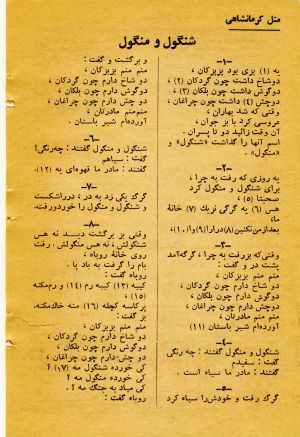 متل کرمانشاهی
شنگول و منگول
-۱-
یه (۱) بزی بود بزبزکان،
دو شاخ داشت چون گردکان (۲)،
دو گوش داشت چون بلکان (۳)
دوچش (۴) داشت چون چراغان،
وقتی که شد بهاران،
عروسی کرد با بز جوان،
آن وقت زائید دو تا پسران.
اسم آنها را گذاشت «شنگول» و
«منگول».
-۲-
یه روزی که رفت به چرا،
برای شنگول و منگول کرد
صحبتا (۵)،
هس (۶) یه گرگی نزیك (۷) خانهٔ
ما،
بعد از من نکنین (۸) درارا (۹) وا (۱۰)،
-۳-
وقتی که بزرفت به چرا، گرگه آمد
پشت در و گفت:
منم منم بزبزکان،
دو شاخ دارم چون گردکان،
دو گوش دارم چون بلکان
دو چش دارم چون چراغان،
منم منم مادرتان،
آورده‌ام شیر باستان (۱۱)
-۴-
شنگول و منگول گفتند: چه رنگی
گفت: سفیدم
گفتند: مادر ما سیاه است.
-۵-
گرگ رفت و خودش را سیاه کرد
و برگشت و گفت:
منم منم بزبزکان،
دو شاخ دارم چون گردکان،
دو گوش دارم چون بلکان،
دو چش دارم چون چراغان،
منم منم مادرتان،
آورده‌ام شیر باستان.
-۶-
شنگول و منگول گفتند: چه رنگی!
گفت: سیاهم
گفتند: مادر ما قهوه‌ای یه (۱۲).
-۷-
گرگ یکی زد به در، درراشکست
و شنگول و منگول را خورد و رفت.
-۸-
وقتی بز برگشت دید نه هس
شنگولش، نه هس منگولش. رفت
روی خانهٔ روباه،
بام را گرفت به باد پا.
روباه گفت:
کیبه (۱۳) کیبه رم (۱۴) و رم مکنه
(۱۵)،
پر کاسه کچله (۱۶) منه خاك مکنه.
بز گفت:
منم منم بزبزکان،
دو شاخ دارم چون گردکان،
دو گوش دارم چون بلکان،
دو چش دارم چون چراغان،
کی خورده شنگول مه (۱۷)؟
کی خورده منگول مه؟
کی میاد به جنگ مه؟.
روباه گفت: